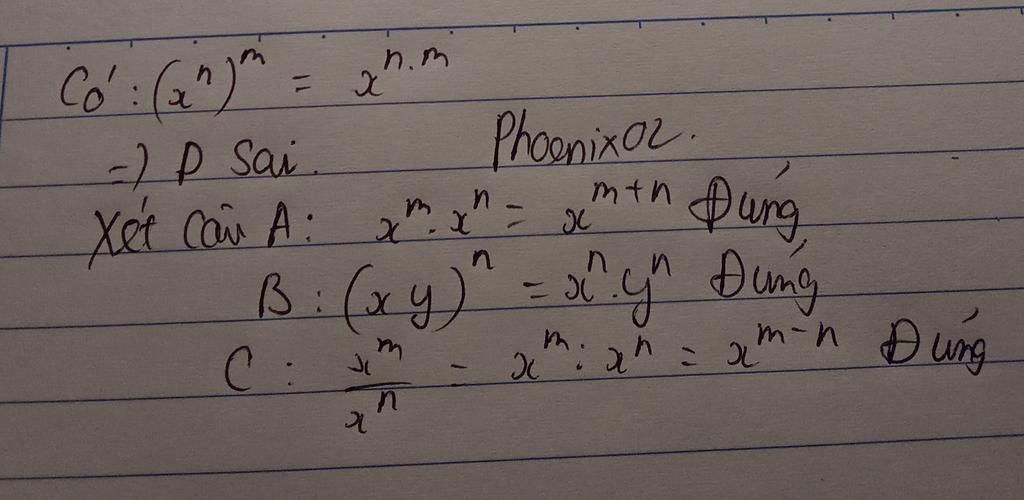 Có: (xⁿ)ᵐ = xⁿ·ᵐ
=) D sai. Phoenix02.
Xét câu A: xᵐ.xⁿ = xᵐ⁺ⁿ Đúng
B: (xy)ⁿ = xⁿ.yⁿ Đúng
C: xᵐ/xⁿ = xᵐ : xⁿ = xᵐ⁻ⁿ Đúng